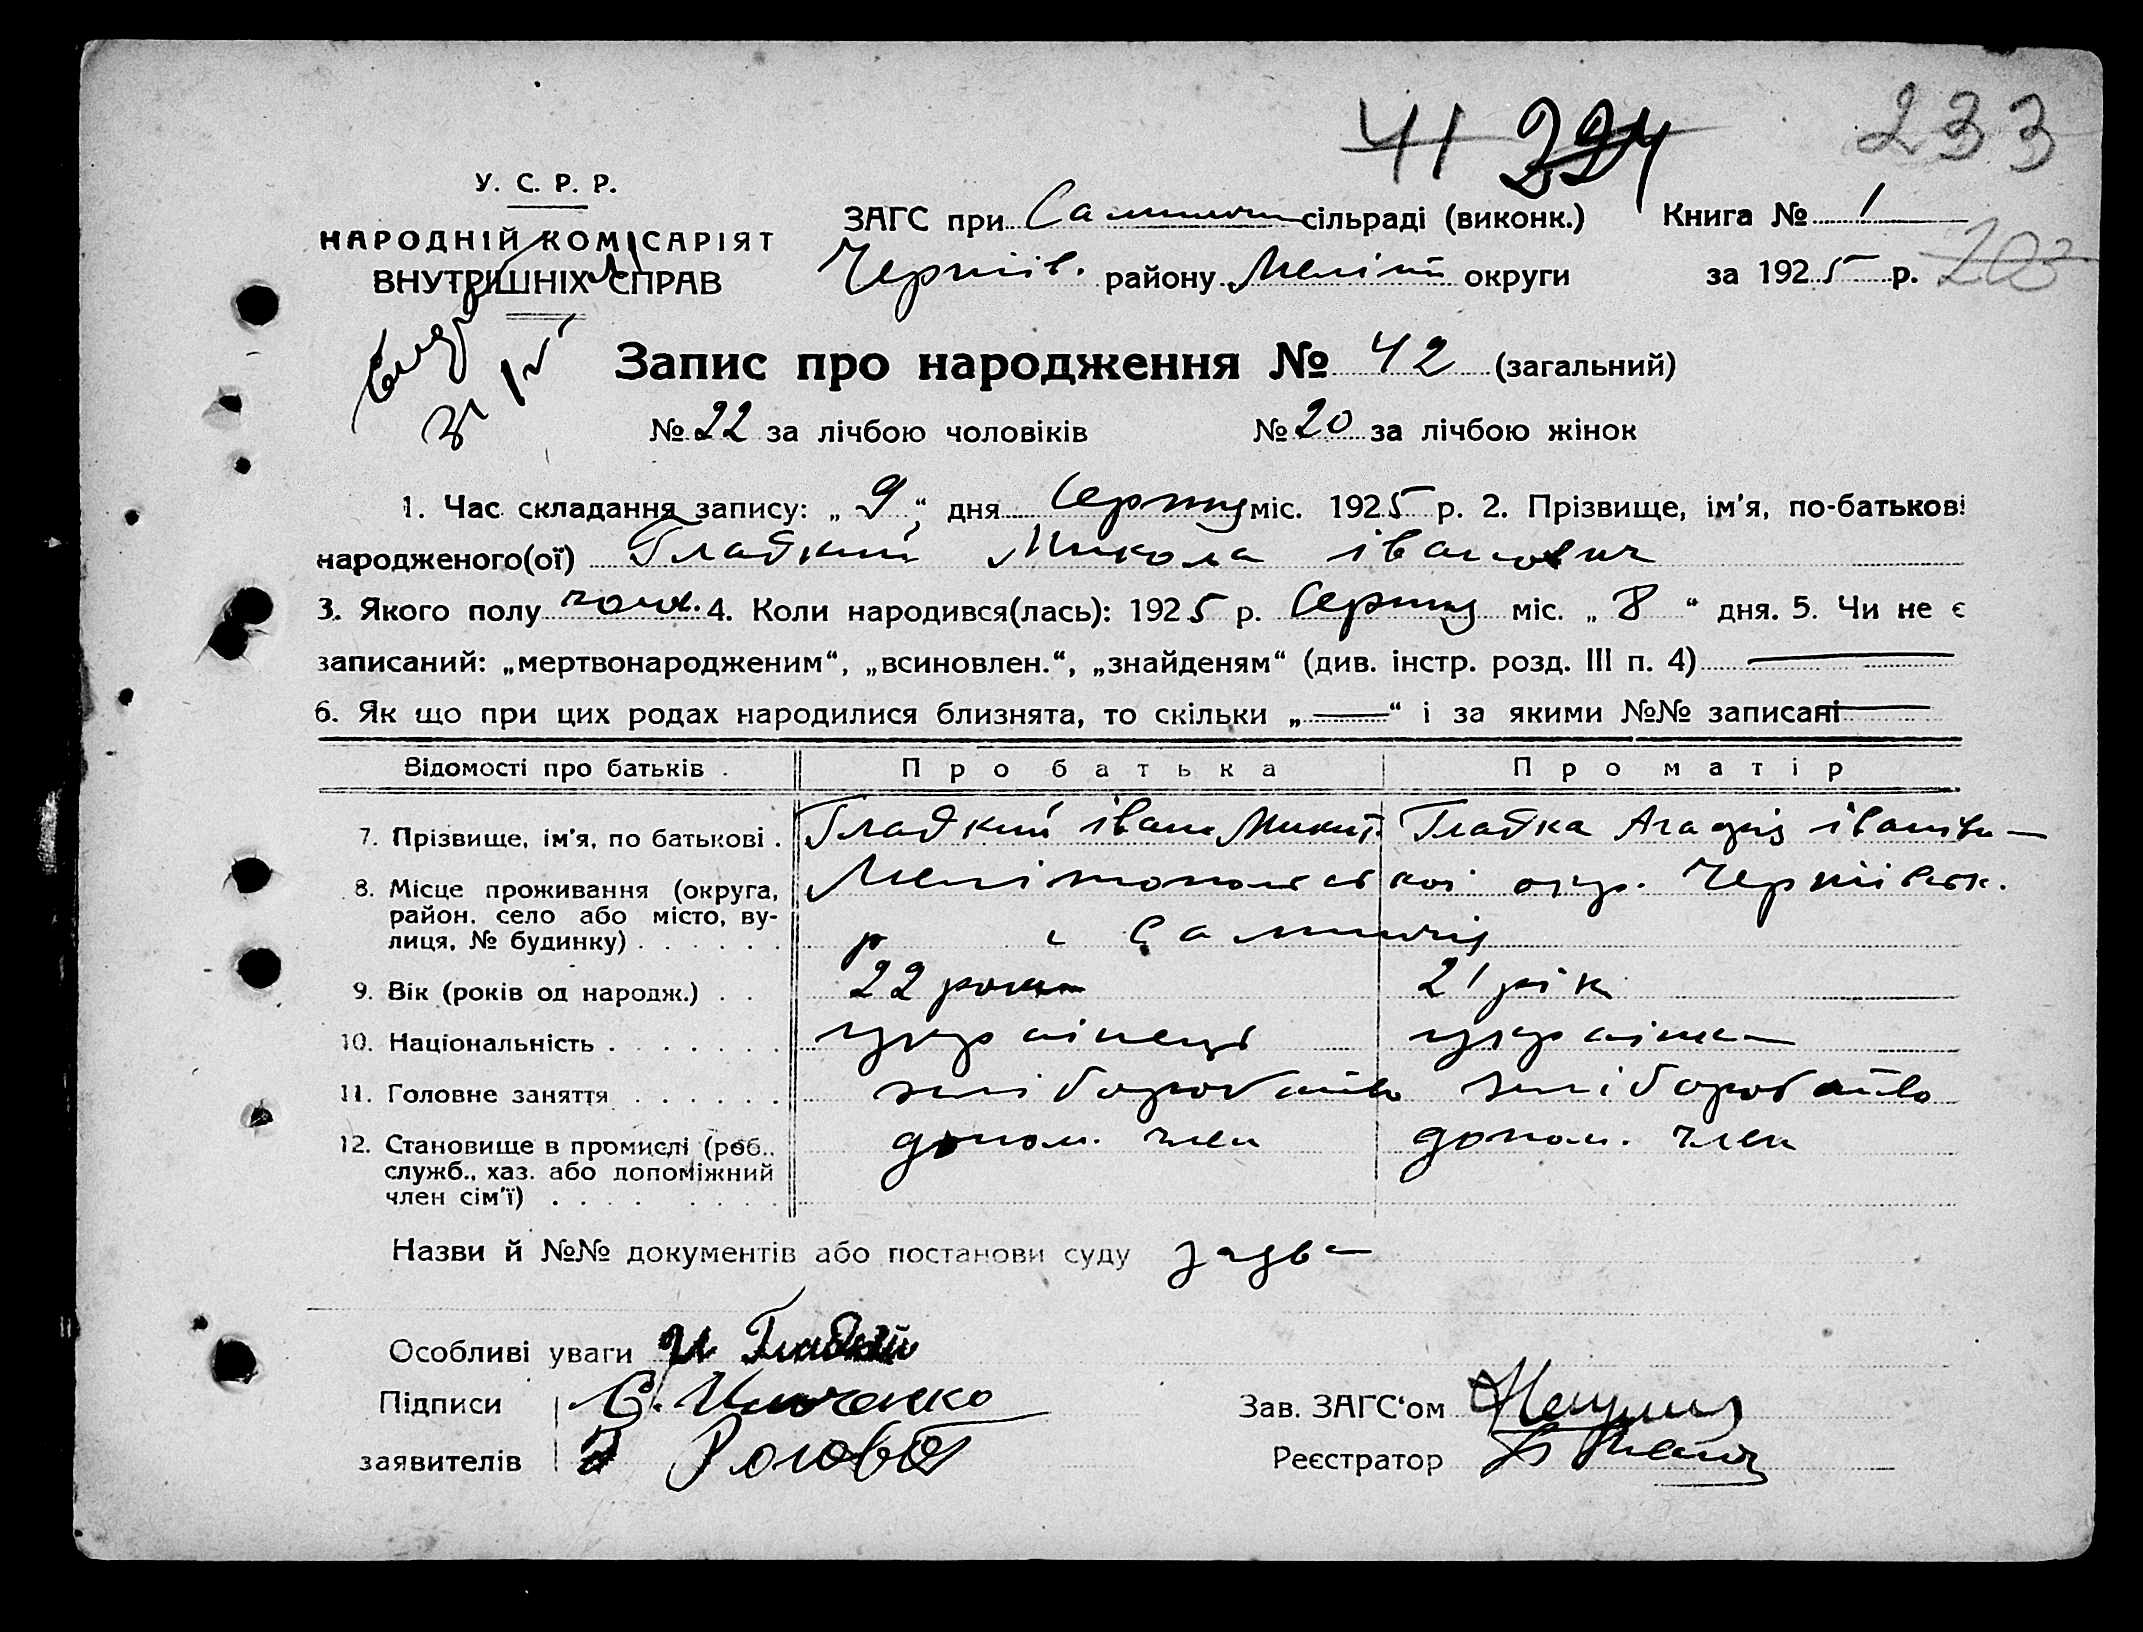 41 224 233
У. С. Р. Р.
НАРОДНІЙ КОМІСАРІЯТ
ВНУТРИШНІХ СПРАВ
ЗАГС при сільраді (виконк.) Книга № 1
Черніів. району Меліт округи за 1925 р. 203
Запис про народження № 42 (загальний)
№ 22 за лічбою чоловіків № 20 за лічбою жінок
1. Час складання запису: „ 9 “ дня Серпня міс. 1925 р. 2. Прізвище, ім'я, по-батькові
народженого(ої) Гладкий Микола іванович
3. Якого полу чол. 4. Коли народився(лась): 1925 р. Серпня міс. „ 8 “ дня. 5. Чи не є
записаний: „мертвонародженим“, „всиновлен.“, „знайденям“ (див. інстр. розд. III п. 4)
6. Як що при цих родах народилися близнята, то скільки „ — “ і за якими №№ записані
Відомості про батьків . Про батька Про матір
7. Прізвище, ім'я, по батькові . Гладкий іван Микит. Гладка Агафія іванівн
8. Місце проживання (округа, Мелітопольської окр. Черніівськ.
район, село або місто, ву-
лиця, № будинку) . . . . . . р с
9. Вік (років од народж.) . . 22 роки 21 рік
10. Національність . . . . . . . українець українка
11. Головне заняття . . . . . . хліборобство хліборобство
12. Становище в промислі (роб., допом. член допом. член
служб., хаз. або допоміжний
член сім'ї) . . . . . . . .
Назви й №№ документів або постанови суду заява
Особливі уваги И Гладкий
Підписи Зав. ЗАГС‘ом
заявителів Реєстратор